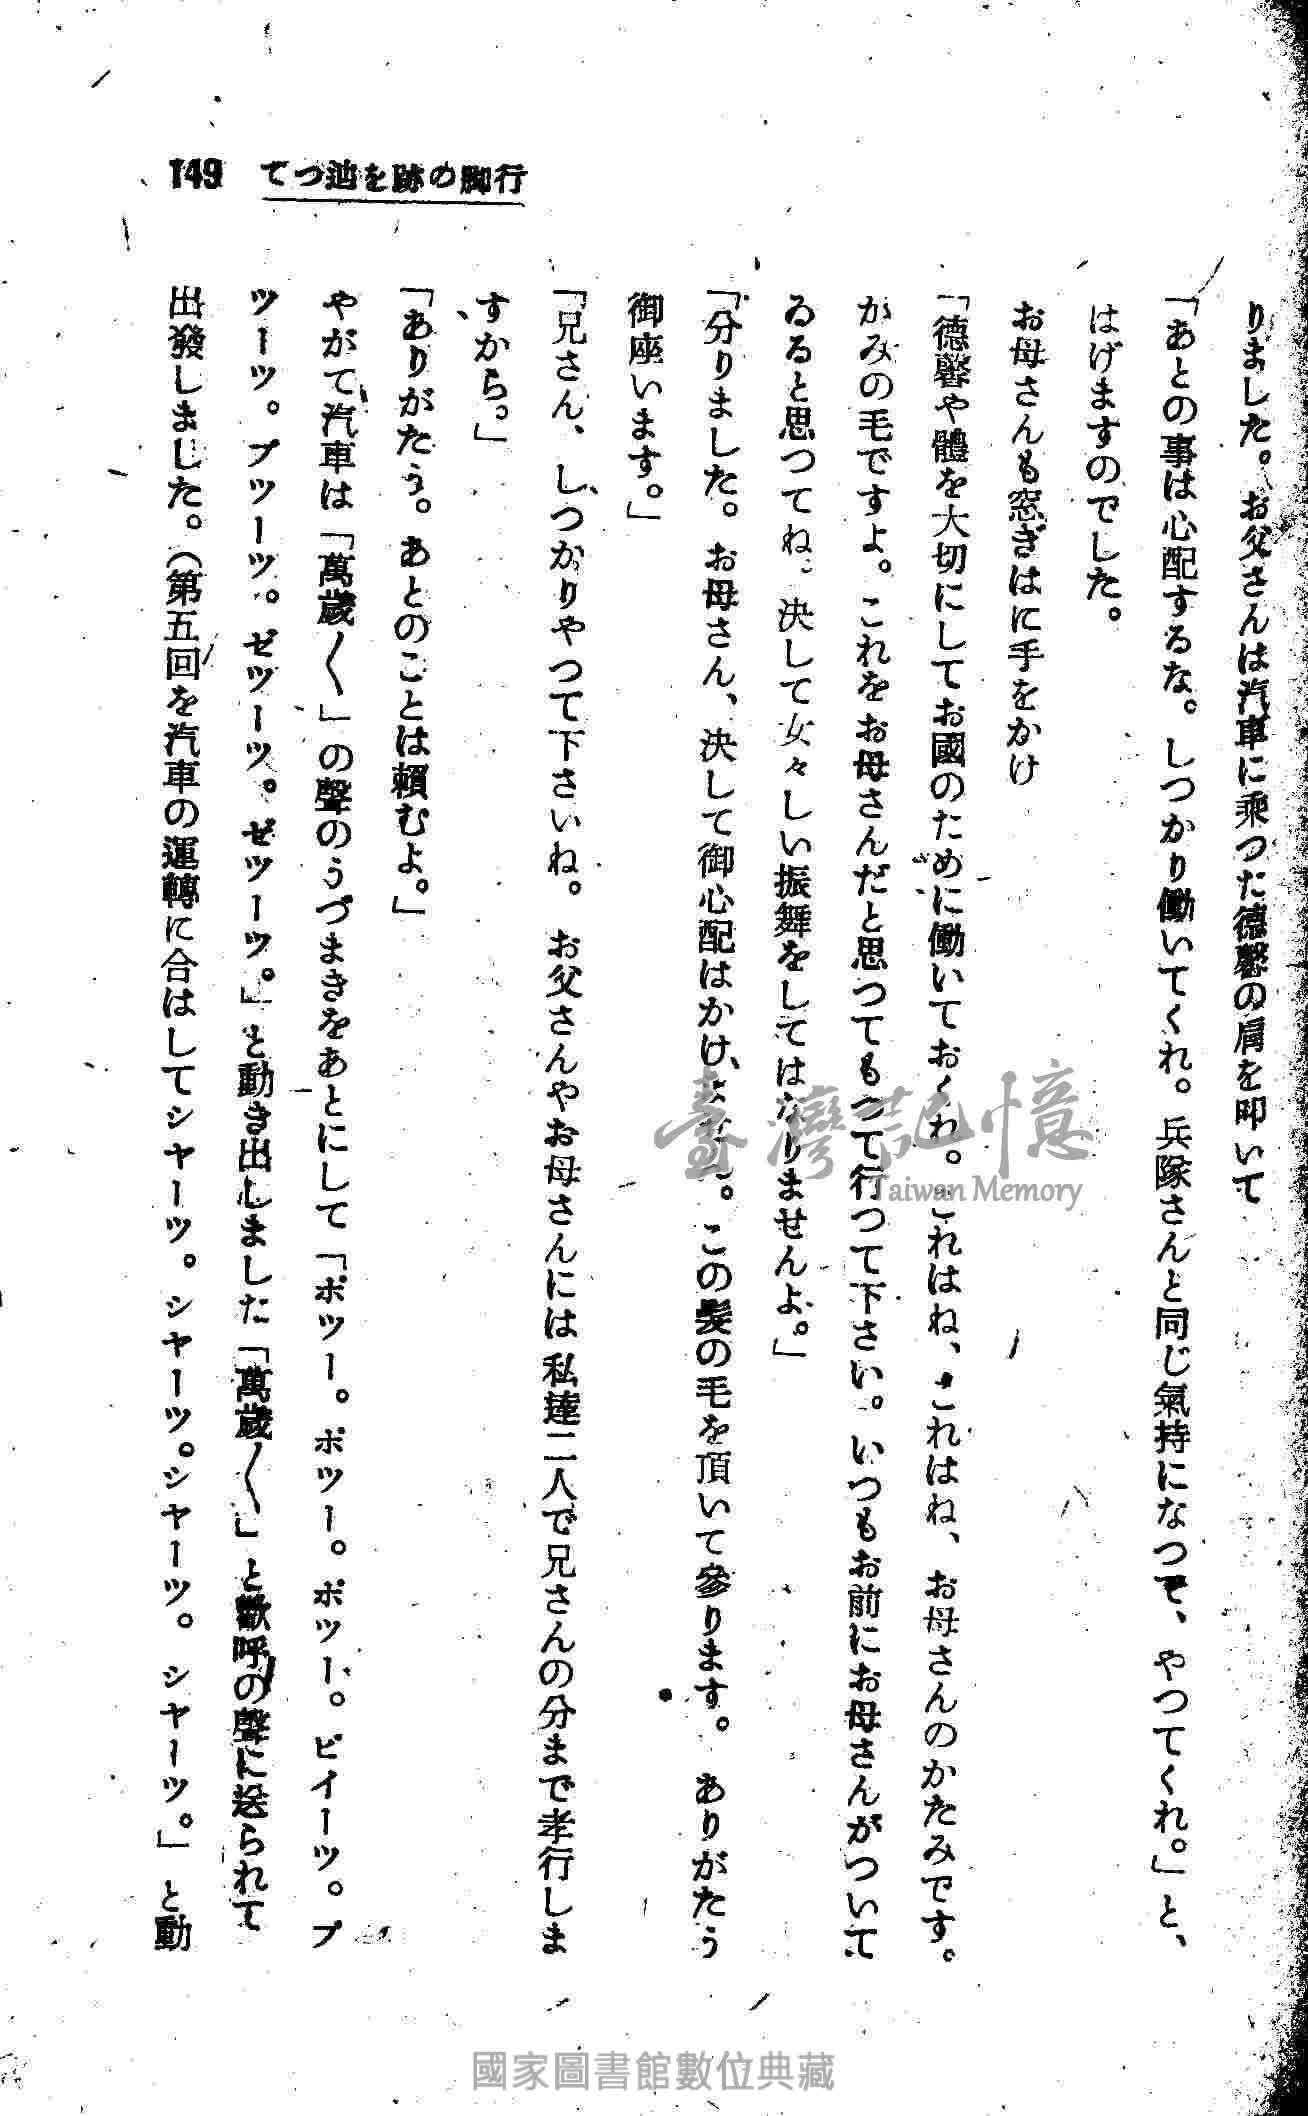 149 てつ辿を跡の脚行
りました。お父さんは汽車に乘つた德馨の肩を叩いて
「あとの事は心配するな。しつかり働いてくれ。兵隊さんと同じ氣持になつて、やつてくれ。」と、
はげますのでした。
お母さんも窓ぎはに手をかけ
「德馨や體を大切にしてお國のために働いておくれ。これはね、これはね、お母さんのかたみです。
がみの毛ですよ。これをお母さんだと思つてもつて行つて下さい。いつもお前にお母さんがついて
ゐると思つてね。決して女々しい振舞をしてはなりませんよ。」
「分りました。お母さん、決して御心配はかけません。この髮の毛を頂いて參ります。ありがたう
御座います。」
「兄さん、しつかりやつて下さいね。お父さんやお母さんには私達二人で兄さんの分まで孝行しま
すから。」
「ありがたう。あとのことは賴むよ。」
やがて汽車は「萬歲〱」の聲のうづまきをあとにして「ポツー。ポツー。ポツー。ピイーツ。プ
ツーツ。プツーツ。ゼツーツ。ゼツーツ。」と動き出しました「萬歲〱」と歡呼の聲に送られて
出發しました。(第五回を汽車の運轉に合はしてシヤーツ。シヤーツ。シヤーツ。シヤーツ。」と動
臺灣記憶
Taiwan Memory
國家圖書館數位典藏